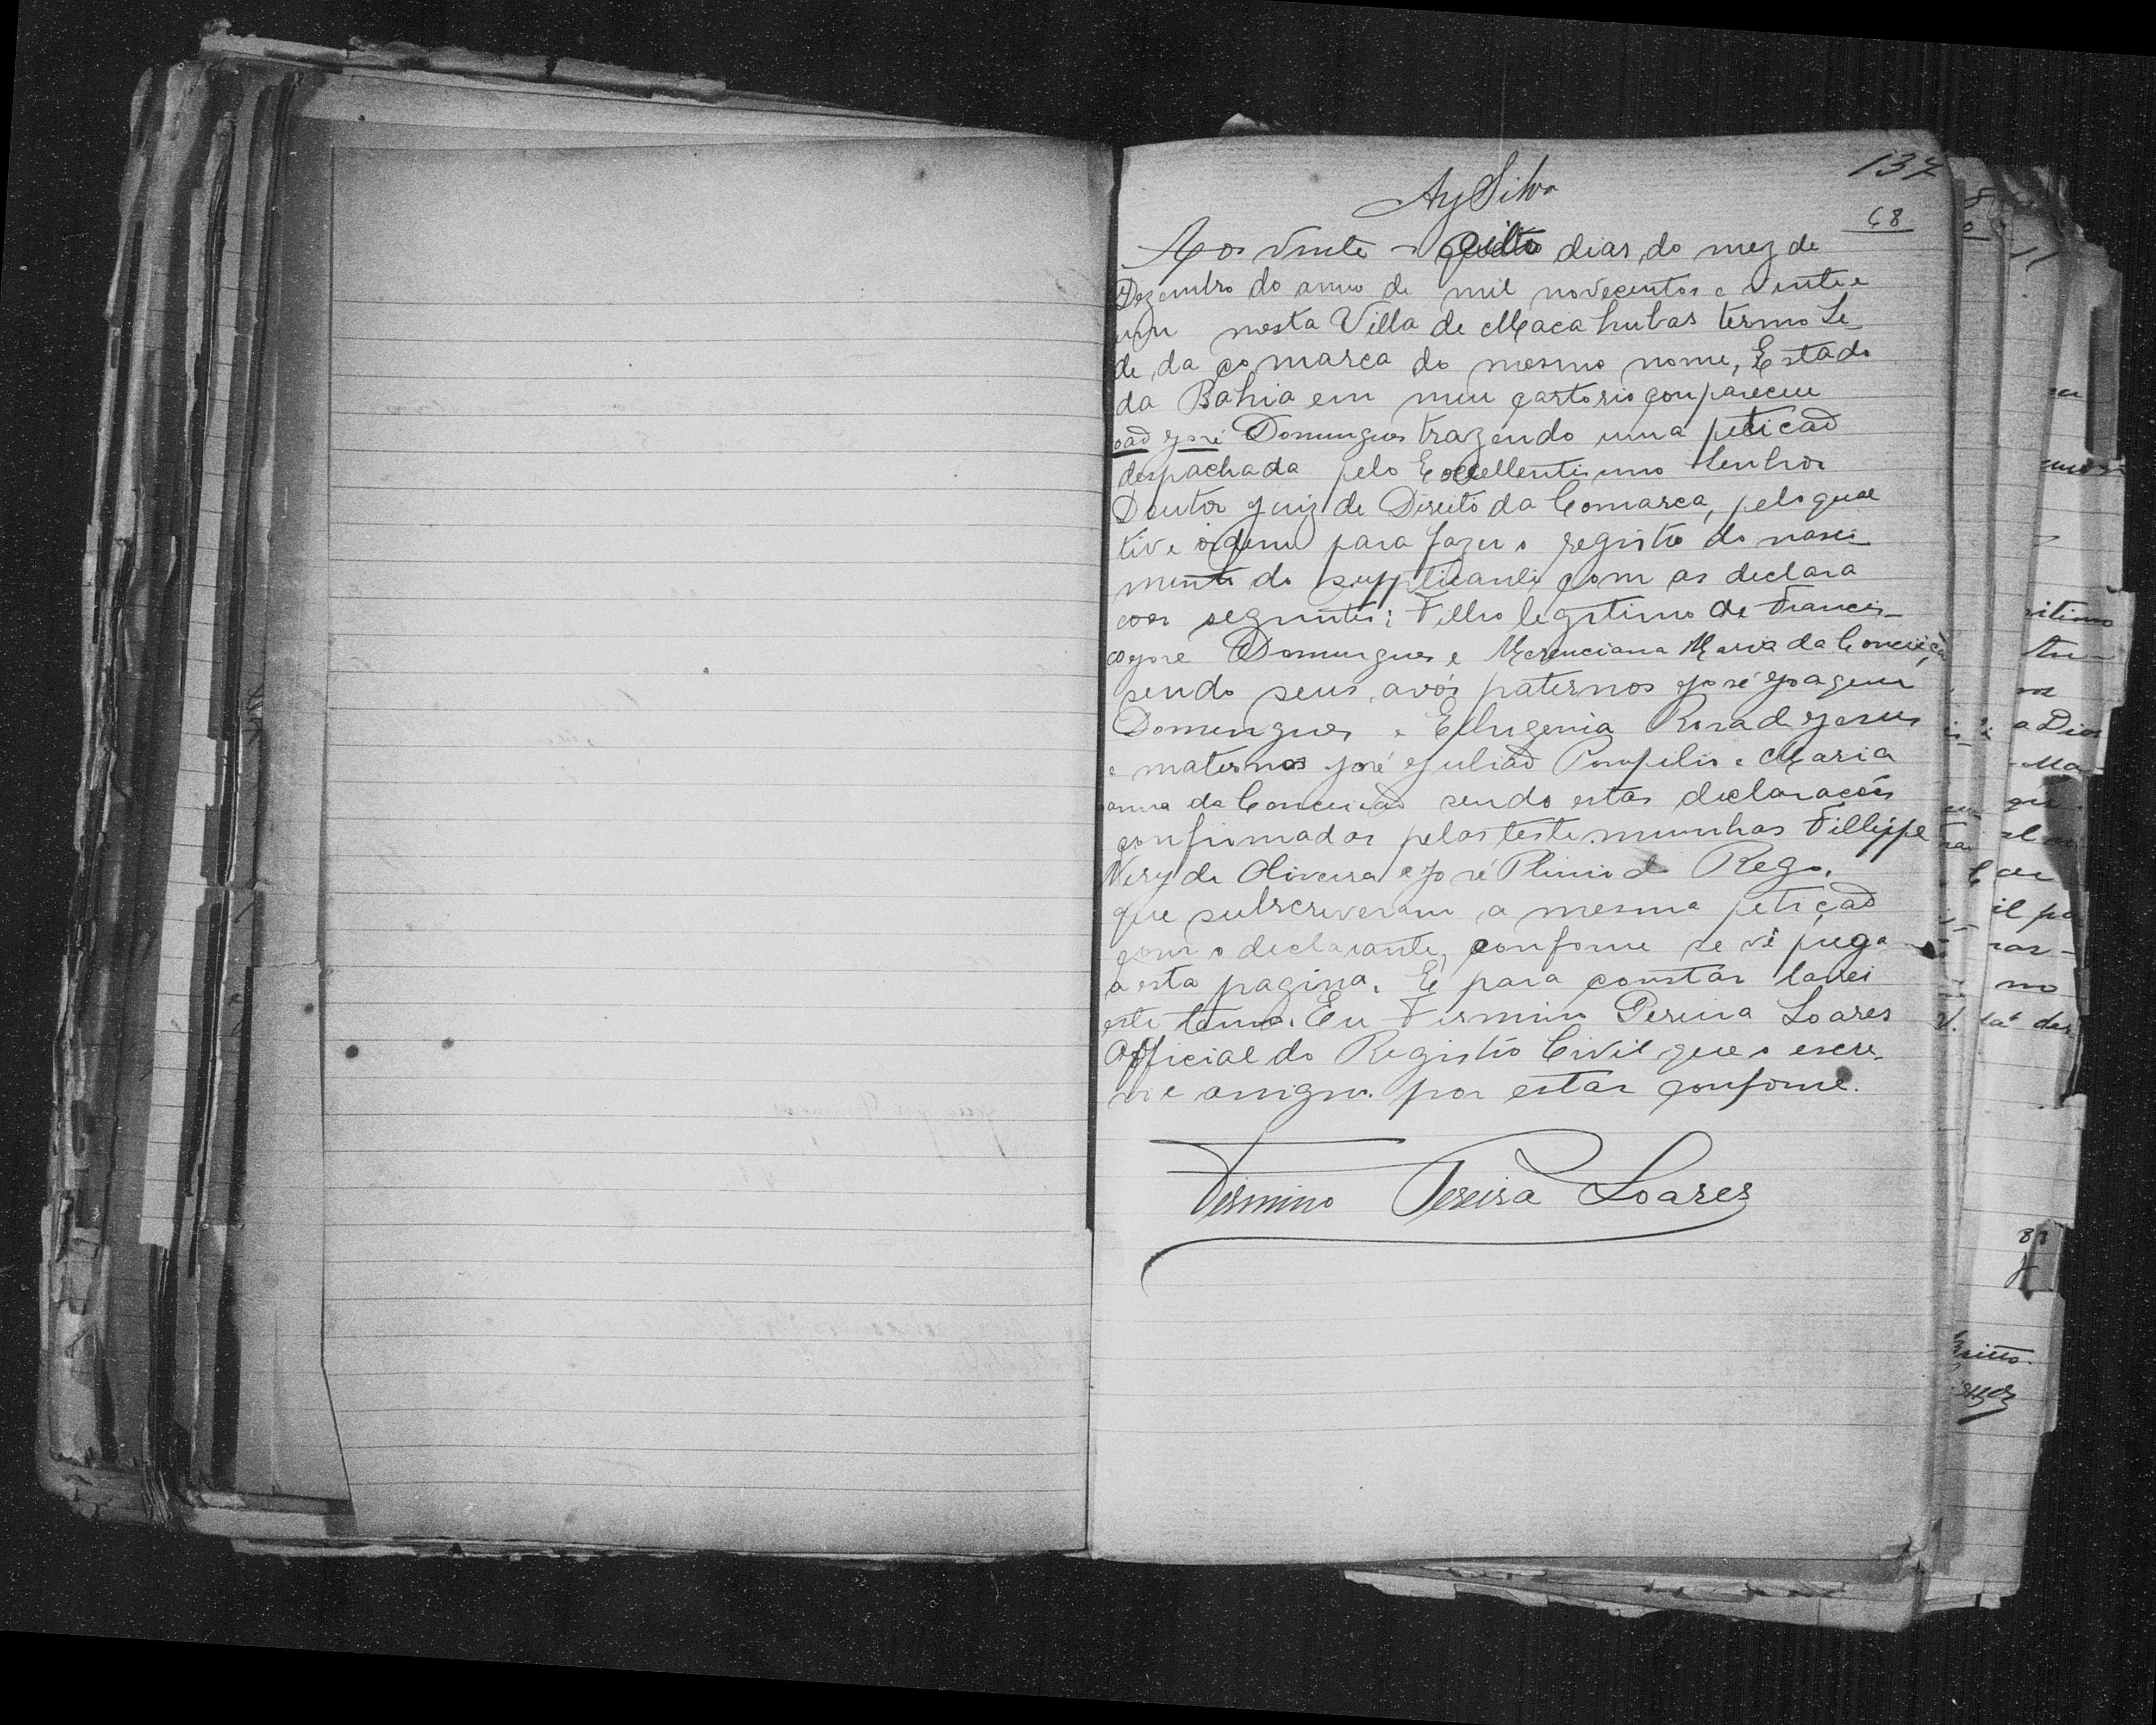 137
Ay Silva
68
Aos vinte e oito dias do mez de
Dezembro do anno de mil novecentos e vinte e
um nesta Villa de Macahubas termo Se-
de da comarca do mesmo nome, Estado
da Bahia em meu cartorio compareceu
oaõ José Domingues trazendo uma peticaõ
despachada pelo Excellentissimo Senhor
Doutor Juiz de Direito da Comarca, pelo qual
tive ordem para fazer o registro do nasci-
mento do supplicante com as declara
coes seguintes: Filho legitimo de Francis-
co José Domingues e Merenciana Maria da Conceiçaõ,
sendo seus avós paternos José Joaquim
Domingues e Ethugenia Rosa de Jesus
e maternos José Juliaõ Pompilio e Maria
anna da Conceicaõ sendo estas declaracões
confirmadas pelas testemunhas Fillippe
Nery de Oliveira e José Plinio do Rego.
que subscreveram a mesma petiçaõ
com o declarante, conforme se vê prega
a esta pagina. E para constar lavrei
este termo. Eu Firmino Pereira Soares
Official do Registro Civil que o escre-
vi e assigno por estar conforme.
Firmino Pereira Soares